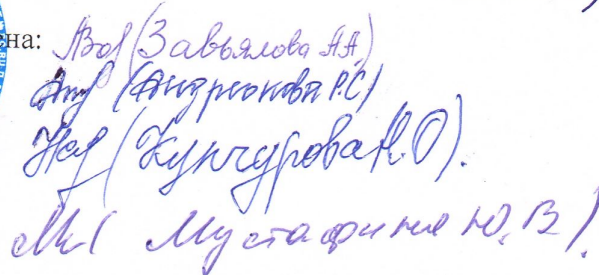 ена: (Завьялова А.А.)
(Андреонова Р.С)
(Кунчурова Н.О).
(Мустафина Ю.В).